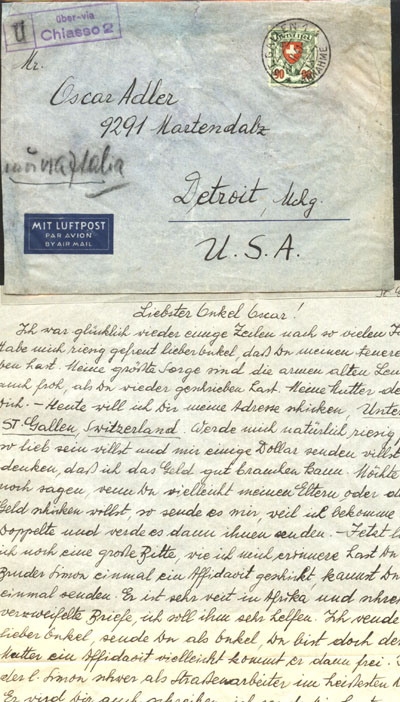 Ü
über-via
Chiasso 2
90
90
ANNAHME
Mr.
Oscar Adler
9291 Martendalz
nur via Italia
Detroit, Mdg.
U. S. A.
MIT LUFTPOST
PAR AVION
BY AIR MAIL
Liebster Onkel Oscar!
Ich war glücklich vieder einige Zeilen nach so vielen
Habe mich riesig gefreut lieber Onkel, daß Du meinen
ben hast. Meine größte Sorge sind die armen alten
auch froh, als Du vieder geschrieben hast. Meine Mutter
Dich. – Heute will ich Dir meine Adresse shicken, Unter
ST. Gallen, Switzerland. Werde mich natürlich riesig
so lieb sein villst und mir einige Dollar senden villst
denken, daß ich das Geld gut brauchen kann. Möchte
noch sagen, venn Du vielleicht meinen Eltern oder
Geld shicken vollst so sende es mir, veil ich bekomme
Doppelte und verde es dann ihnen senden. – Jetzt
ich noch eine große Bitte, vie ich mich erinnere hast Du
Bruder Simon einmal ein Affidavit geshickt kannst Du
einmal senden. Er ist sehr veit in Afrika und
verzweifelte Briefe, ich soll ihm sehr helfen. Ich vende
lieber Onkel, sende Du als Onkel, Du bist doch der
Mutter ein Affidavit vielleicht kommt er dann frei.
der l. Simon shver als Straßenarbeiter im heißesten
Er vird Dir auch